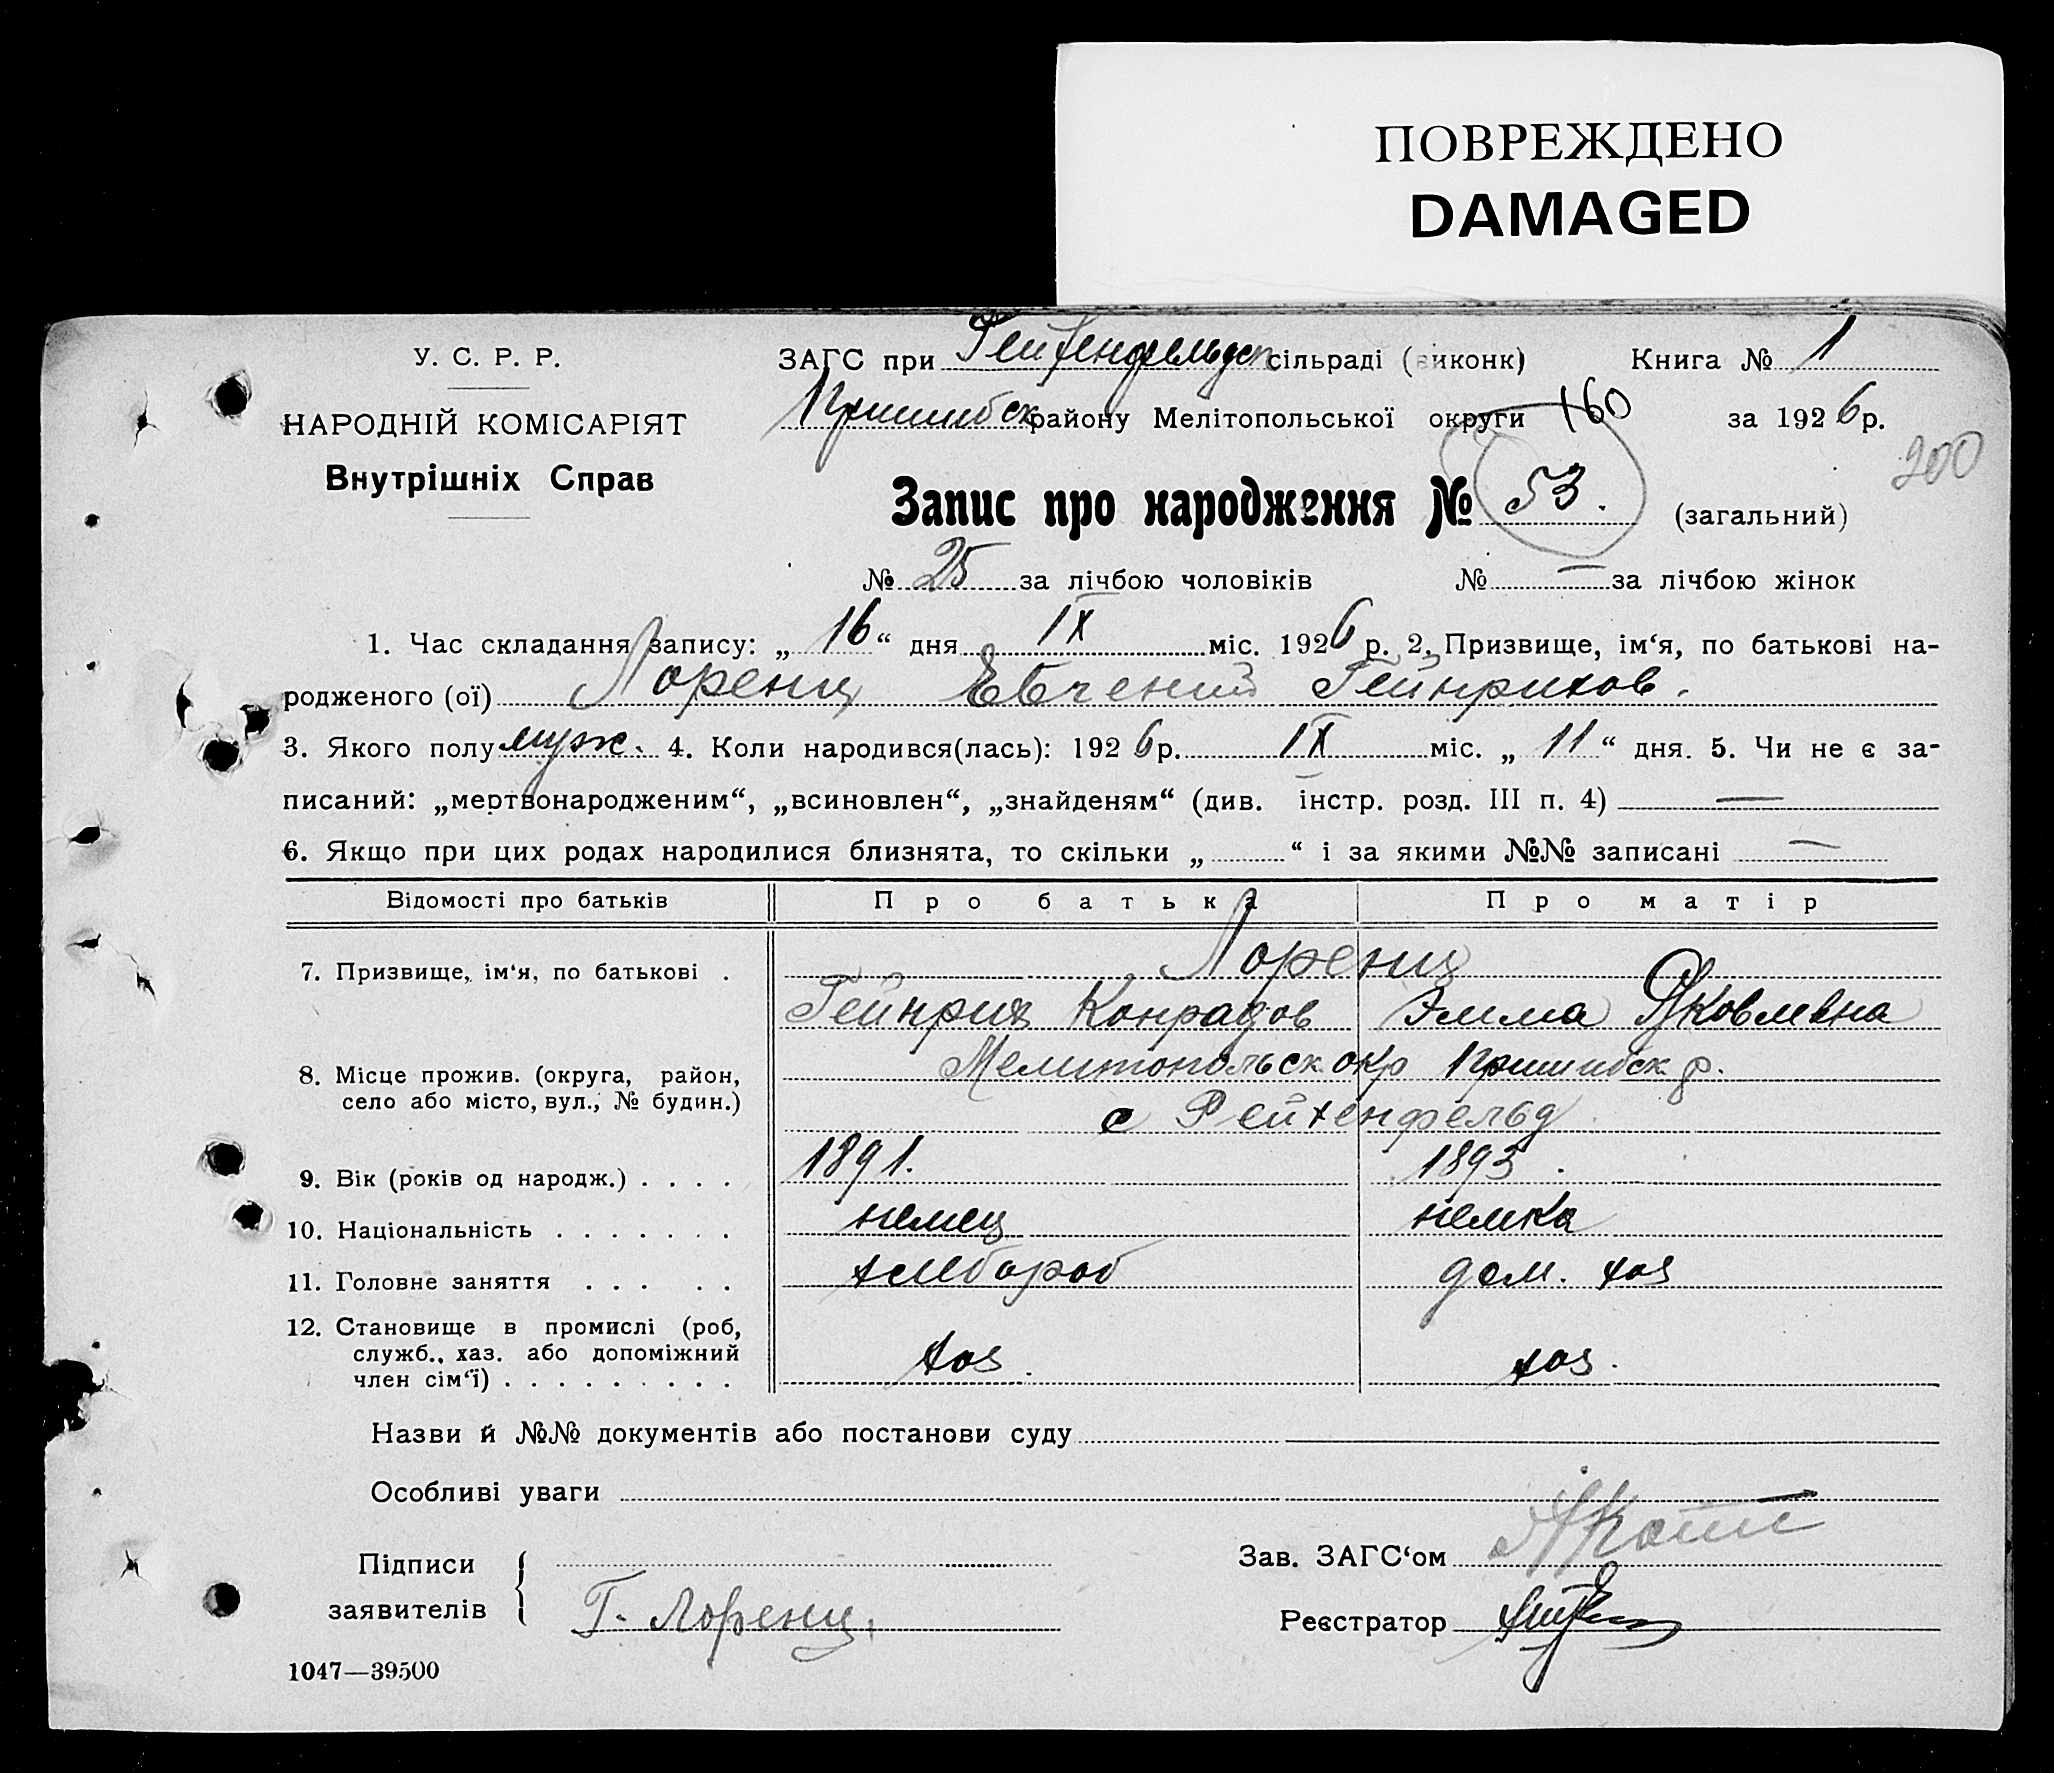 ПОВРЕЖДЕНО
DAMAGED
У. С. Р. Р.
НАРОДНІЙ КОМІСАРІЯТ
Внутрішніх Справ
ЗАГС при Рейхенфельдск сільраді (виконк) Книга № 1
Пришибск району Мелітопольської округи 160 за 1926 р.
200
Запис про народження № 53. (загальний)
№ 25 за лічбою чоловіків № — за лічбою жінок
1. Час складання запису: „ 16 “ дня IX міс. 1926 р. 2. Призвище, ім‘я, по батькові на-
родженого (ої) Лоренц Евгений Гейнрихов.
3. Якого полу муж. 4. Коли народився(лась): 1926 р. IX міс. „ 11 “ дня. 5. Чи не є за-
писаний: „мертвонародженим“, „всиновлен“, „знайденям“ (див. інстр. розд. III п. 4) —
6. Якщо при цих родах народилися близнята, то скільки „ “ і за якими №№ записані —
Відомості про батьків Про батька Про матір
7. Призвище, ім‘я, по батькові . Лоренц
Гейнрих Конрадов Эмма Яковлевна
8. Місце прожив. (округа, район, Мелитопольск окр Пришибск р.
село або місто, вул., № будин.) с Рейхенфельд
9. Вік (років од народж.) . . . . 1891. 1893.
10. Національність . . . . . . . немец немка
11. Головне заняття . . . . . хлебороб дом. хоз
12. Становище в промислі (роб,
служб., хаз. або допоміжний хоз. хоз.
член сім‘ї) . . . . . . . . .
Назви й №№ документів або постанови суду
Особливі уваги
Підписи
заявителів Г. Лоренц.
Зав. ЗАГС‘ом
Реєстратор
1047—39500